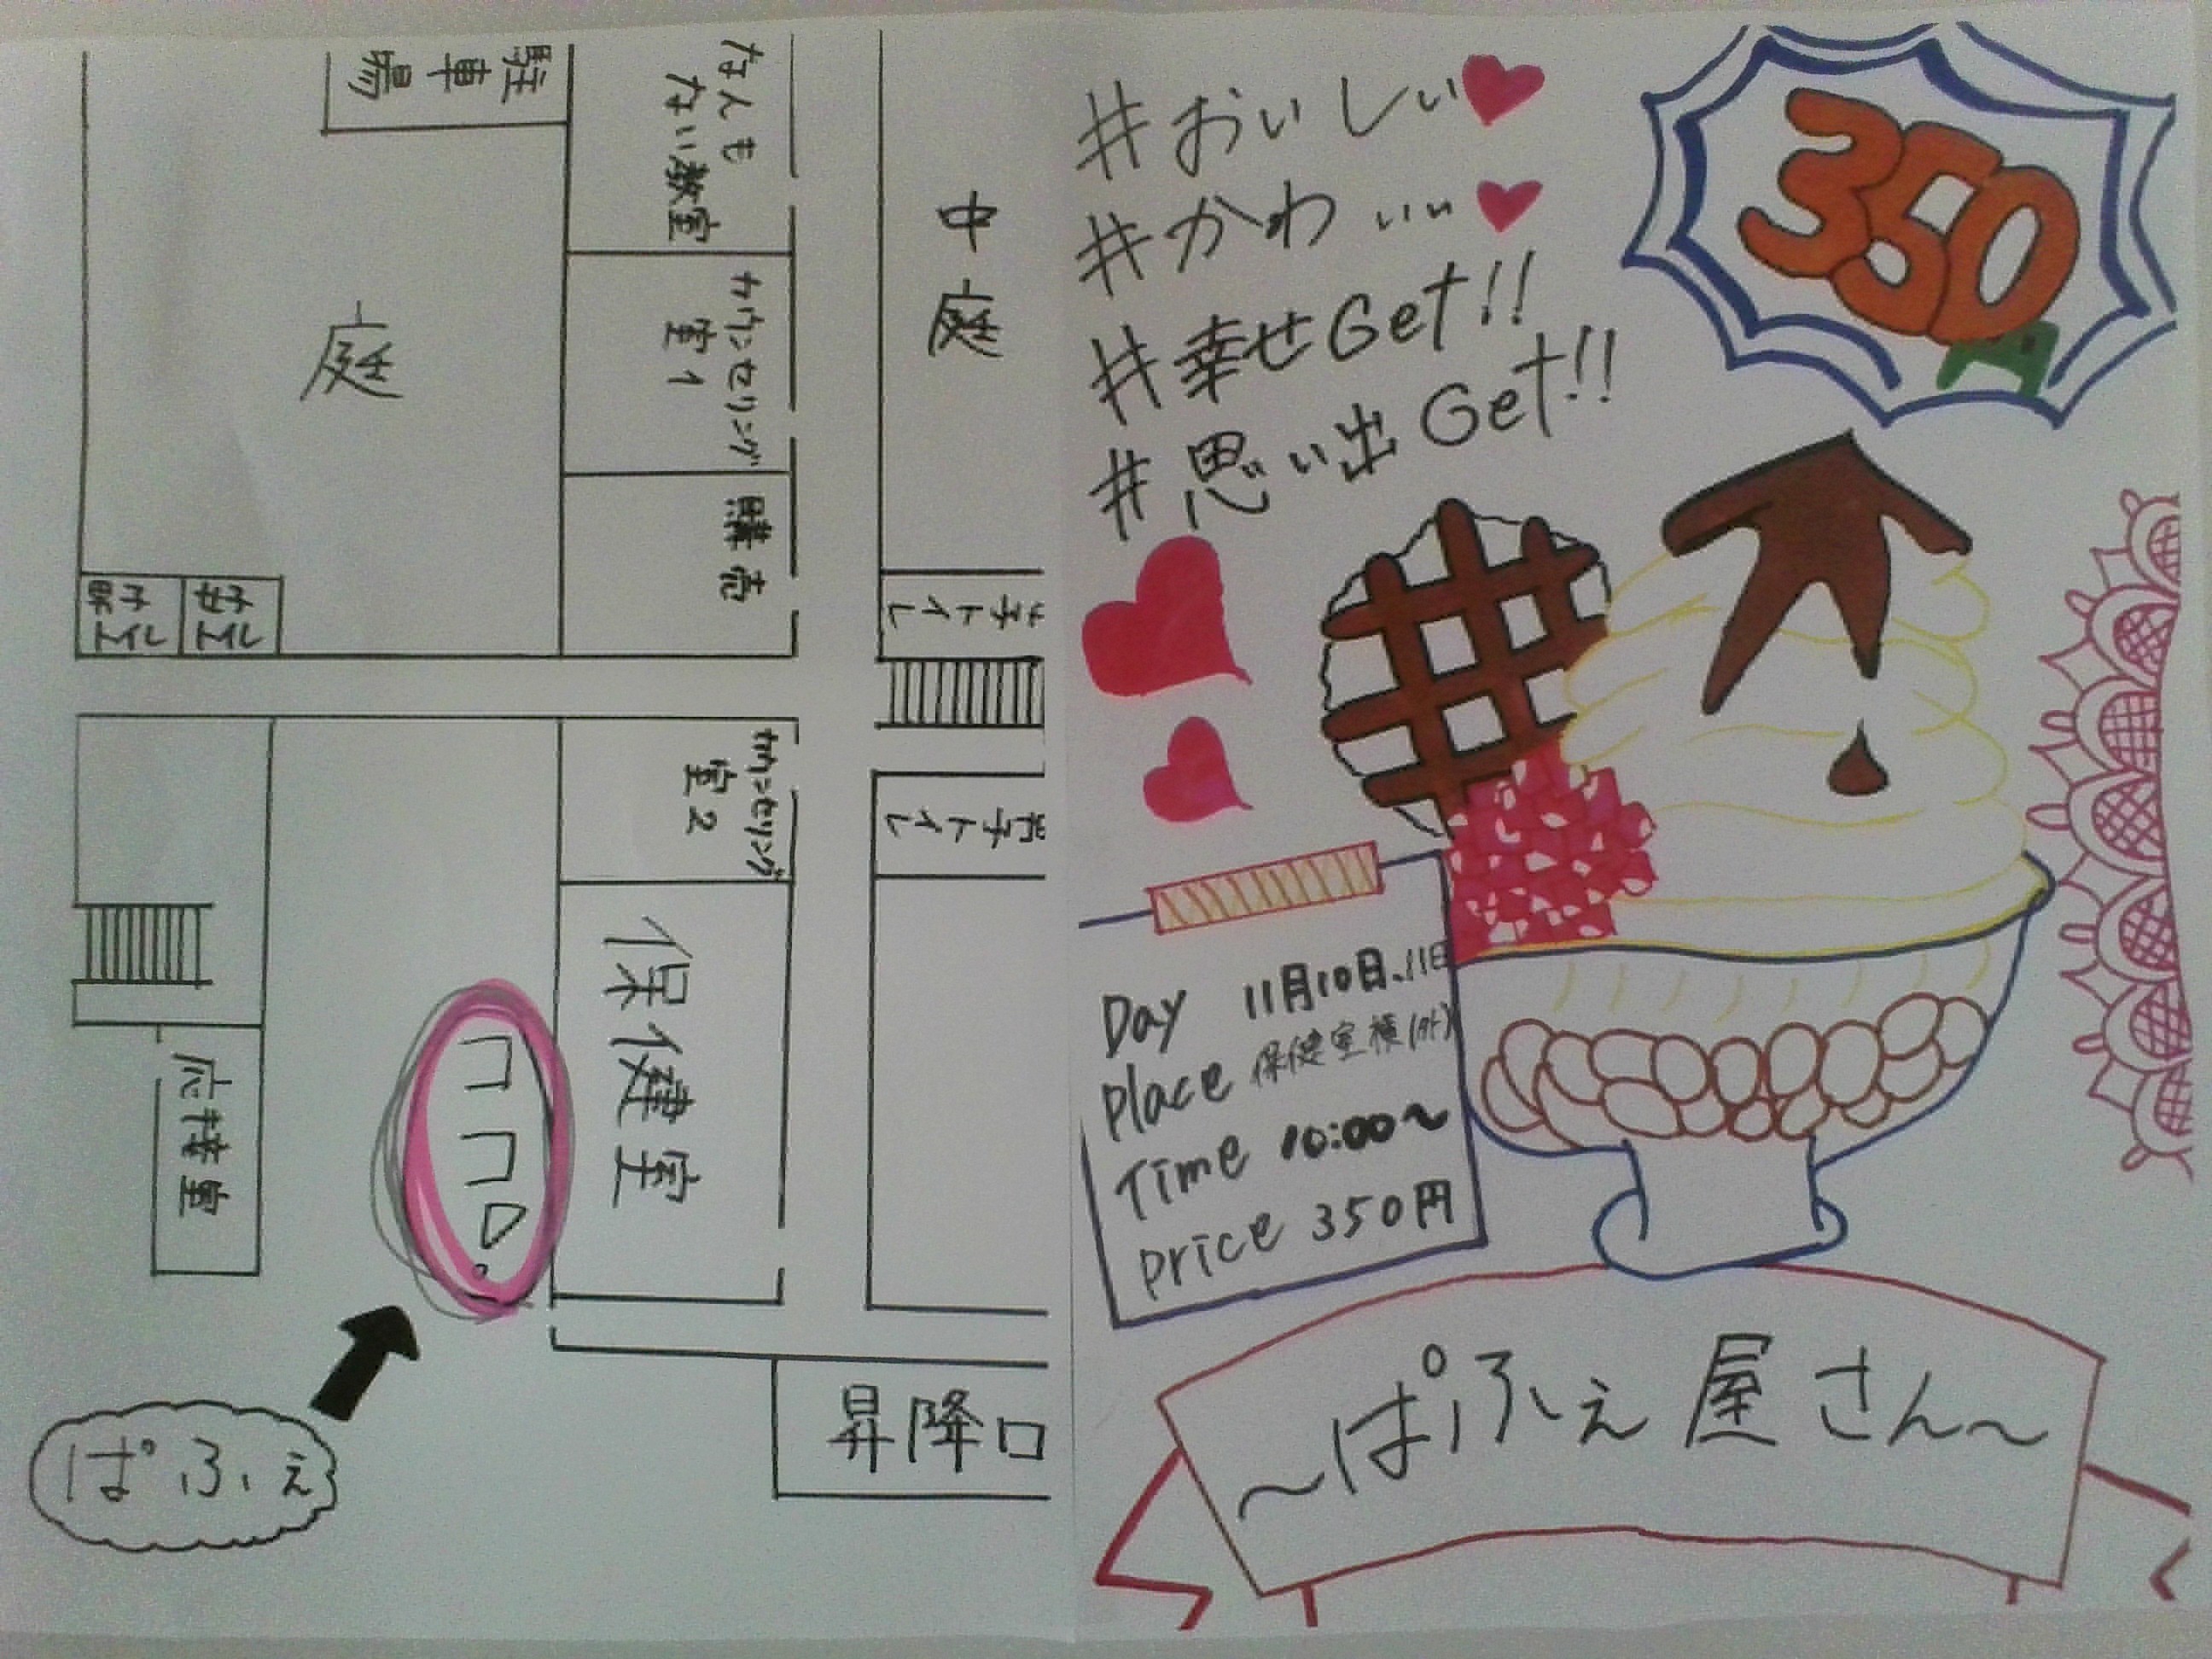 駐車場
なんも
ない教室
中庭
庭
カウンセリング
室1
購売
女子トイレ
カウンセリング
室2
男子トイレ
保健室
応接室
昇降口
ぱふぇ
#おいしい
#かわいい
#幸せGet!!
#思い出Get!!
350
Day 11月10日、11日
Place 保健室横(外)
Time 10:00〜
price 350円
〜ぱふぇ屋さん〜